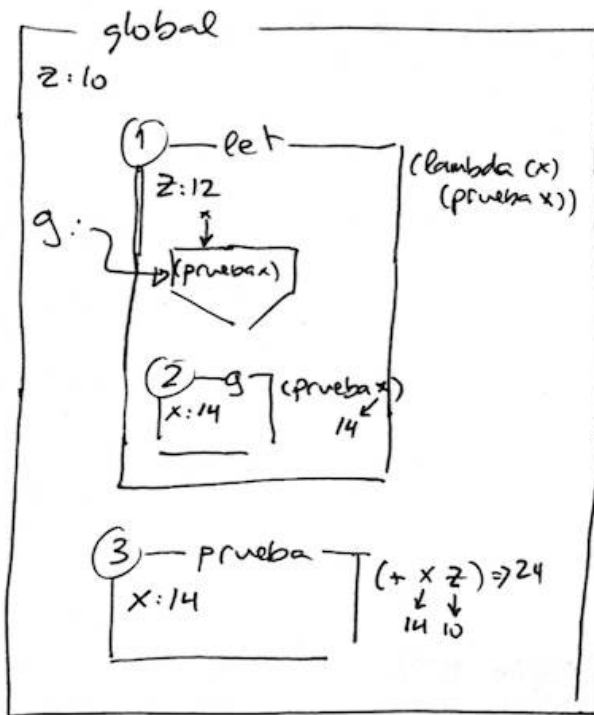 global
z:10
1 let
(lambda (x)
(prueba x))
z:12
x
g:
(prueba x)
2 g (prueba x)
x:14
14
3 prueba
(+ x z) => 24
x:14
14 10